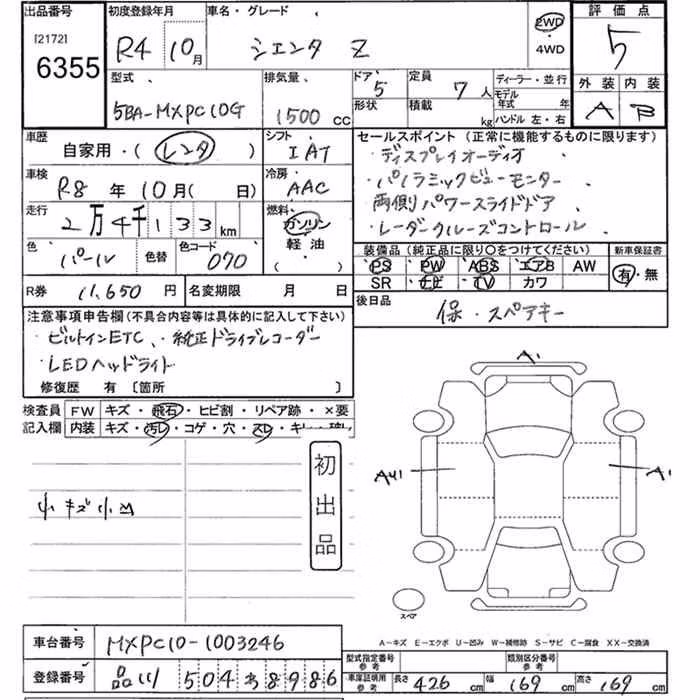 出品番号
[2172]
6355
初度登録年月
R4 10月
車名・グレード
シエンタ Z
2WD
・4WD
評価点
5
外装 内装
A B
型式
5BA-MXPC10G
排気量
1500 CC
ドア 5
形状
定員 7 人
積載 kg
ディーラー・並行
モデル
年式 年
ハンドル 左・右
車歴
自家用・(レンタ)
シフト
IAT
車検
R8 年 10月( 日)
冷房
AAC
走行
2万4千133km
燃料
ガソリン
軽油
・( )
色
パール
色替
色コード
070
R券 11,650 円
名変期限 月 日
セールスポイント(正常に機能するものに限ります)
・ディスプレイオーディオ
・パノラミックビューモニター
両側パワースライドドア
・レーダークルーズコントロール
装備品(純正品に限り○をつけてください)
新車保証書
PS PW ABS エアB AW
SR ナビ TV カワ
有・無
後日品
保・スペアキー
注意事項申告欄(不具合内容等は具体的に記入して下さい)
・ビルトインETC、・純正ドライブレコーダー
・LEDヘッドライト
修復歴 有〔箇所 〕
検査員
記入欄
FW キズ・飛石・ヒビ割・リペア跡・×要
内装 キズ・汚レ・コゲ・穴・スレ・
小キズ小凹
初出品
A1
AU1
A1
スペア
A-キズ E-エクボ U-凹み W-補修跡 S-サビ C-腐食 XX-交換済
車台番号
MXPC10-1003246
登録番号
品川 504 あ8986
型式指定番号
参考
類別区分番号
参考
車庫証明用
参考
長さ 426 cm 幅 169 cm 高さ 169 cm